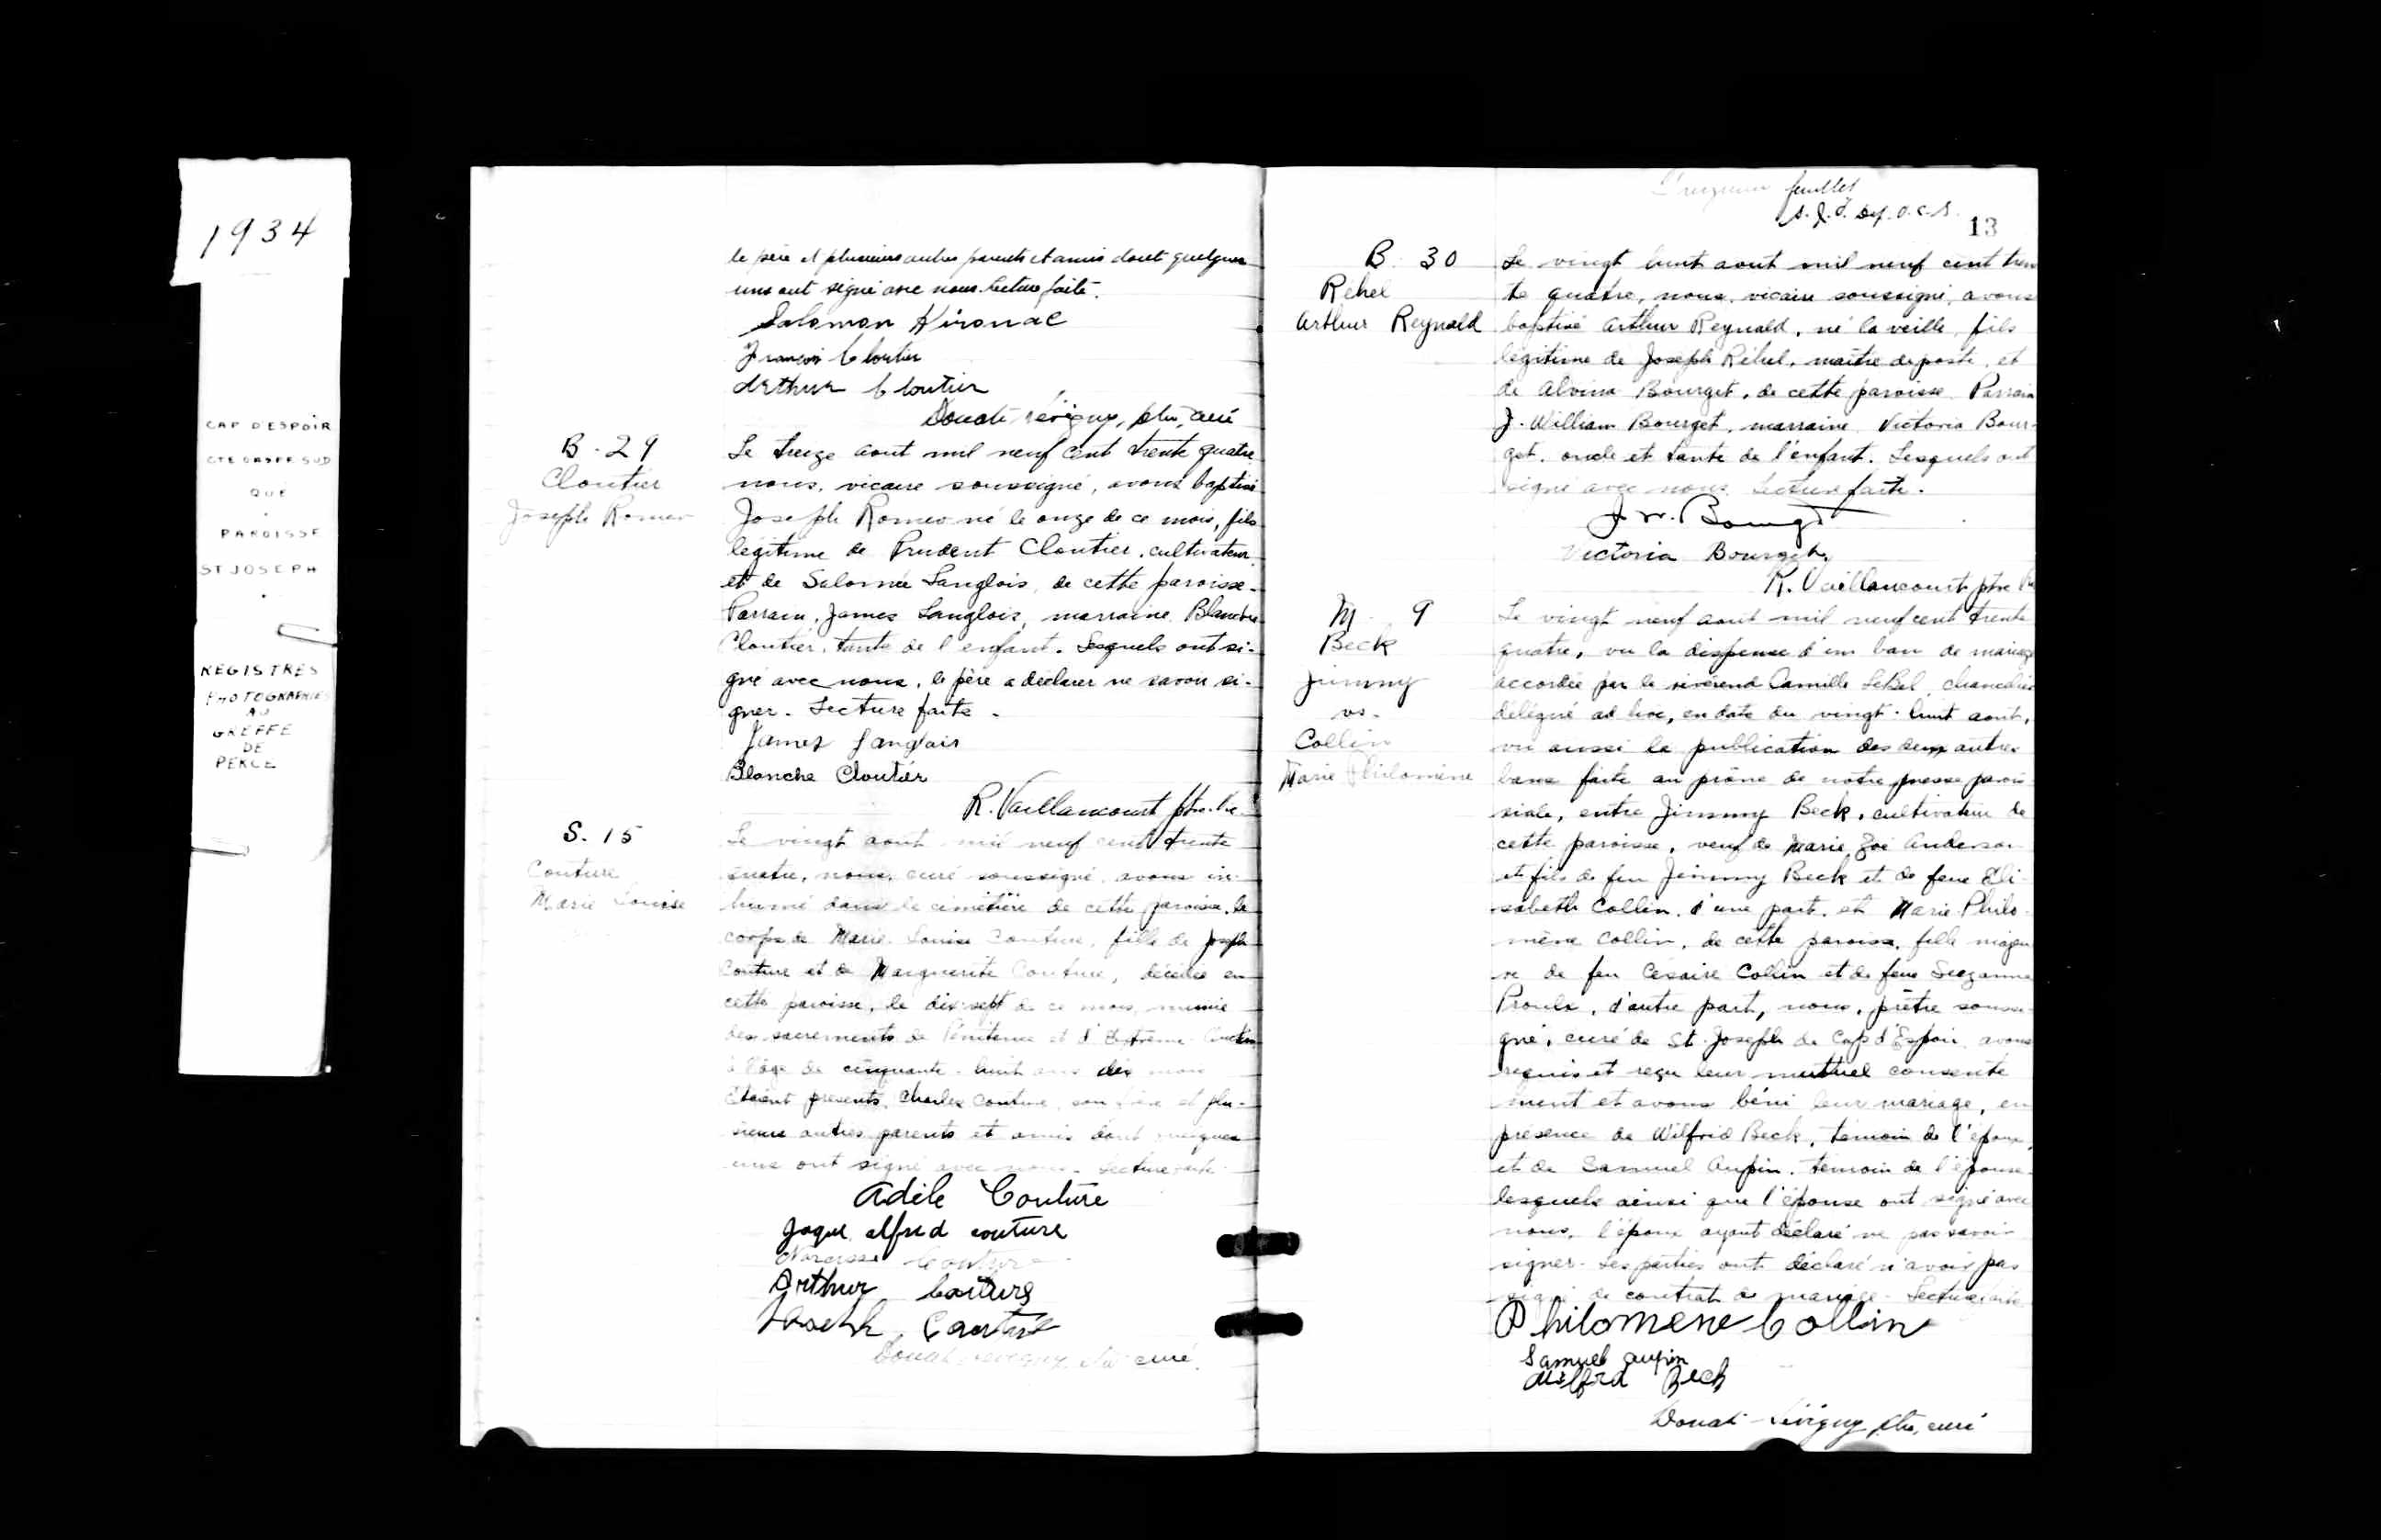 1934
CAP D'ESPOIR
CTE GASPE SUD
QUE
PAROISSE
ST JOSEPH
REGISTRES
PHOTOGRAPHIES
AU
GREFFE
DE
PERCE
le père et plusieurs autres parents et amis dont quelques
uns ont signé avec nous. Lecture faite.
Salomon
François Cloutier
Arthur Cloutier
Donat Sévigny, ptre, curé
B. 29
Cloutier
Joseph Romeo
Le treize aout mil neuf cent trente quatre
nous, vicaire soussigné, avons baptisé
Joseph Romeo né le onze de ce mois, fils
légitime de Prudent Cloutier, cultivateur
et de Salomée Langlois, de cette paroisse.
Parrain, James Langlois, marraine Blanche
Cloutier, tante de l'enfant. Lesquels ont si-
gné avec nous, le père a déclarer ne savoir si-
gner. Lecture faite.
James Langlais
Blanche Cloutier
R. Vaillancourt ptre
S. 15
Couture
Marie Louise
Le vingt aout mil neuf cent trente
quatre, nous, curé soussigné avons in-
humé dans le cimetière de cette paroisse, le
corps de Marie Louise Couture, fille de Joseph
Couture et de Marguerite Couture, décédée en
cette paroisse, le dix-sept de ce mois, munie
des sacrements de Pénitence et d'Extrême Onction
à l'âge de cinquante-huit ans dix mois
Etaient presents, Charles Couture, son frère et plu-
sieurs autres parents et amis dont quelques
uns ont signé avec nous. Lecture faite.
Adèle Couture
Jaque Alfred couture
Narcisse Couture
Arthur Couture
Joseph Couture
Donat Sévigny, ptre curé.
feuillet
13
B. 30
Rehel
Arthur Reynald
Le vingt huit aout mil neuf cent tren
te quatre, nous, vicaire soussigné, avons
baptisé Arthur Reynald, né la veille, fils
légitime de Joseph Réhel, maître de poste, et
de Alvina Bourget, de cette paroisse. Parrain
J. William Bourget, marraine Victoria Bour-
get, oncle et tante de l'enfant. Lesquels ont
signé avec nous. Lecture faite.
J W. Bourget
Victoria Bourget
R. Vaillancourt ptre
M. 9
Beck
Jimmy
vs.
Collin
Marie Philomène
Le vingt neuf aout mil neuf cent trente
quatre, vu la dispense d'un ban de mariage
accordée par le révérend Camille LeBel, chancelier
délégué ad hoc, en date du vingt-huit aout,
vu aussi la publication des deux autres
bans faite au prône de notre messe parois
siale, entre Jimmy Beck, cultivateur de
cette paroisse, veuf de Marie Zoé Anderson
et fils de feu Jimmy Beck et de feue Eli-
sabeth Collin, d'une part, et Marie Philo-
mène Collin, de cette paroisse, fille majeu
re de feu Césaire Collin et de feue Suzanne
Proulx, d'autre part, nous, prêtre soussi-
gné, curé de St. Joseph de Cap d'Espoir, avons
requis et reçu leur muttuel consente
ment et avons béni leur mariage, en
présence de Wilfrid Beck, témoin de l'époux,
et de Samuel Aupin, témoin de l'épouse
lesquels ainsi que l'épouse ont signé avec
nous, l'époux ayant déclaré ne pas savoir
signer. Les parties ont déclaré n'avoir pas
signé de contrat de mariage. Lecture faite
Philomène Collin
Samuel Aupin
Wilfrid Beck
Donat Sévigny ptre, curé